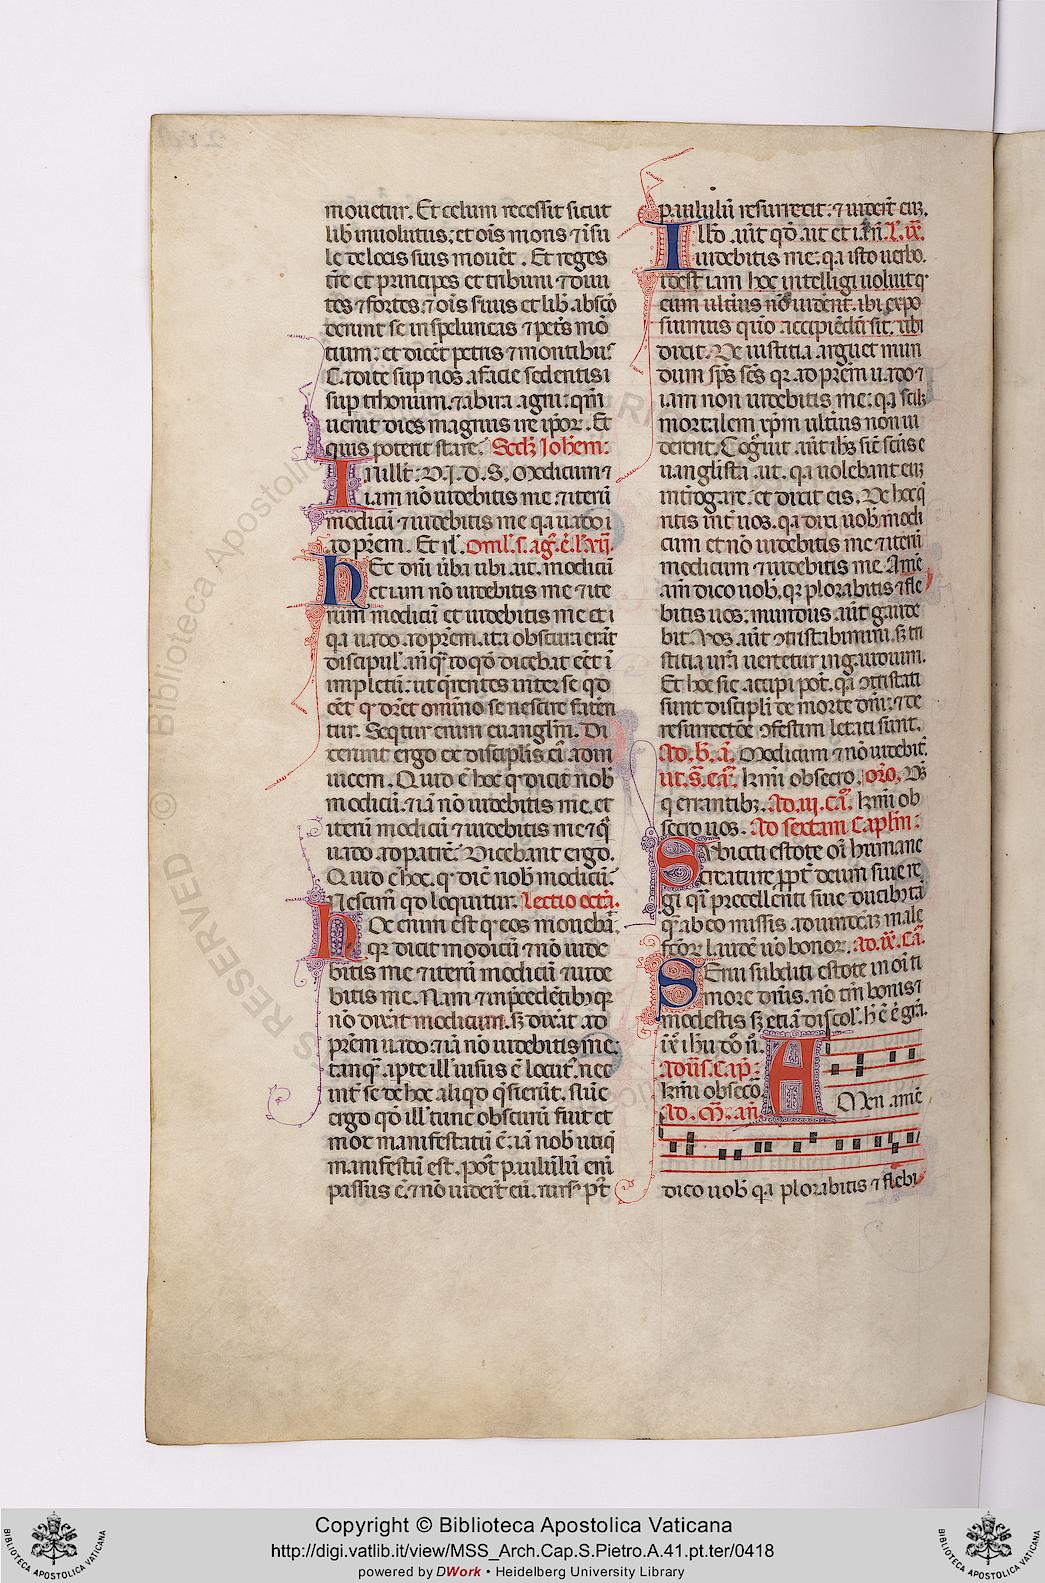 mouetur. Et celum recessit sicut
lib inuolutus: et oīs mons ⁊ īsu
le de locis suis mouēt. Et reges
tr̄e et principes et tribuni ⁊ diui
tes ⁊ fortes: ⁊ oīs suus et lib abscō
derunt se in speluncas ⁊ petras mō
tium: et dicēt petris ⁊ montibus
Cadite sup nos a facie sedentis
sup thronum. ⁊ ab ira agni: qm̄
uenit dies magnus ire ipor. Et
quis poterit stare. Scd'z Ioh'em:
In illt: D. I. D. S. Modicum ⁊
iam nō uidebitis me ⁊ iterū
modicū ⁊ uidebitis me qa uado
ad pr̄em. Et rl'. Omł. s. ag'. ē. l. vii.
Hec dn̄i ūba ubi ait. modicū
et iam nō uidebitis me ⁊ ite
rum modicū et uidebitis me et
qa uado ad pr̄em. ita obscura erāt
discipul'. an̄ q̄ id qd̄ dicebat eēt
impletū: ut q̄rentes inter se qd
eēt qd̄ dr̄et omīno se nescire faten
tur. Seqtur enim euanglm̄. Di
cerunt ergo ex disciplis ei' ad in
uicem. Quid ē hoc qd̄ dicit nob'
modicū. ⁊ iā nō uidebitis me. et
iterū modicū ⁊ uidebitis me ⁊ q̄
uado ad patrē. Dicebant ergo.
Quid ē hoc. qd̄ dic̄ nob' modicū.
Nescim' qd loquitur. Lectio octā.
Hoc enim est qd̄ eos mouebā:
qr dicit modicū ⁊ nō uide
bitis me ⁊ iterū modicū ⁊ uide
bitis me. Nam ⁊ in p̄cedētib' qr
nō dixit modicum. sz dixit. ad
pr̄em uado. ⁊ iā nō uidebitis me.
tanq̄ apte ill' uisus ē locut'. nec
int̄ se de hoc aliqd q̄sierūt. Nūc
ergo qd̄ ill' tunc obscurū fuit et
mox manifestatū ē. iā nob' utiq
manifestū est. post paululū eni
passus ē. ⁊ nō uiderūt eū. rurs' pt
paululū resurrexit: ⁊ uider̄t eū.
Illd̄ aut̄ qd̄ ait et iā nō L. ix.
uidebitis me: qa isto uerbo.
idest iam hoc intelligi uoluit q
eum ulterius nō uiderēt. ibi expo
suimus quō accipiēdū sit. ubi
dixit. De iustitia arguet mun
dum sps̄ scs̄ qr. ad pr̄em uado ⁊
iam non uidebitis me: qa scil'
mortalem xpm̄ ulterius non ui
derent. Cognouit aūt ihs sic̄ seqs
euanglista ait. qa uolebant eū
int̄rogare. et dixit eis. De hoc q̄
ritis int̄ uos. qa dixi uob' modi
cum et nō uidebitis me ⁊ iterū
modicum ⁊ uidebitis me. Amē
am̄ dico uob'. qr plorabitis ⁊ fle
bitis uos: mundus aūt gaude
bit. Vos aūt ɔtristabimini. sz tri
stitia ur̄a uertetur in gaudium.
Et hoc sic accipi pot̄. qa ɔtristati
sunt discipli de morte dn̄i: ⁊ de
resurrectōe ɔfestim letati sunt.
Ad. b'. a'. Modicum ⁊ nō uidebit'.
ut. s'. ca'. Krmi obsecro. oro'. Ds̄
q errantib'. Ad. iij. ca'. Krmi ob
secro uos. Ad sextam Caplm̄:
Subiecti estote oī humane
creature propt' deum siue re
gi qsi precellenti siue ducib' tā
q̄ ab eo missis. ad uindictā male
fcōr. laudē uō bonor. Ad. ix. ca'.
Serui subditi estote in oī ti
more dn̄is. nō tm̄ bonis ⁊
modestis sz etiā discol'. h' ē ē grā.
ī xp̄o ihu dō n̄.
Ad uīs. Cap':
Krmi obsecō
Ad. m̄. an̄.
AMen amē
dico uob' qa plorabitis ⁊ flebi
RESERVED © Biblioteca Apostolica
BIBLIOTECA APOSTOLICA VATICANA
Copyright © Biblioteca Apostolica Vaticana
http://digi.vatlib.it/view/MSS_Arch.Cap.S.Pietro.A.41.pt.ter/0418
powered by DWork • Heidelberg University Library
BIBLIOTECA APOSTOLICA VATICANA